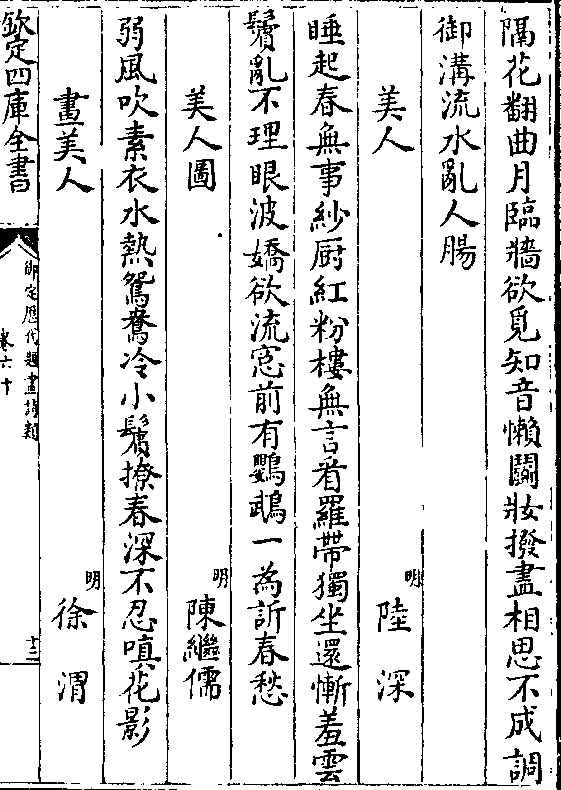 隔花翻曲月臨牆欲覓知音懶鬭妝撥盡相思不成調
御溝流水亂人腸
美人 明 陸深
睡起春無事紗厨紅粉樓無言看羅帶獨坐還慚羞雲
鬢亂不理眼波嬌欲流窓前有鸚鵡一為訴春愁
美人圖 明 陳繼儒
弱風吹素衣水熱鴛鴦冷小鬟撩春深不忍嗔花影
畫美人 明 徐渭
欽定四庫全書
御定歴代題畫詩類
卷六十
十二